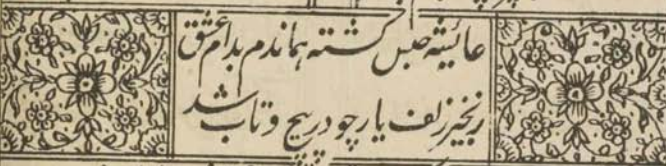 عائشه حبس گشته هماندم بدام عشق
زنجیر زلف یار چو در پیچ و تاب شد